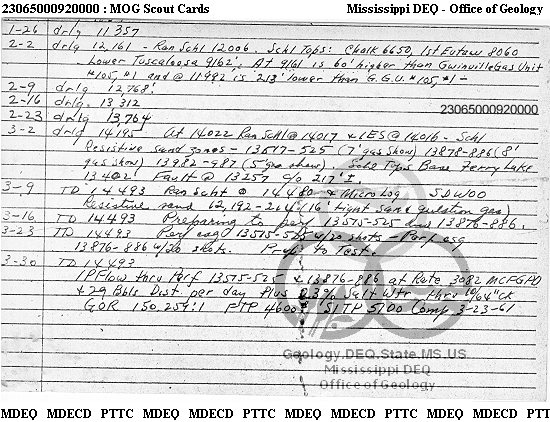 23065000920000 : MOG Scout Cards Mississippi DEQ - Office of Geology
1-26 drlg 11357
2-2 drlg 12,161 - Ran Schl 12006. Schl Tops: Chalk 6650, 1st Eutaw 8060
Lower Tuscaloosa 9162'. At 9161 is 60' higher than Gwinville Gas Unit
#105, #1 and @ 11992 is 213' lower than G.G.U. #105, #1-
2-9 drlg 12,768'
2-16 drlg. 13,312
23065000920000
2-23 drlg 13,764
3-2 drlg 14195 At 14022 Ran Schl @ 14017 & IES @ 14016 - Schl
Resistive sand zones - 13517-525 (7' gas show) 13878-886 (8'
gas show) 13982-987 (5' gas show). Schl Tops Base Ferry Lake
13402' Fault @ 13257 c/o 217' ±.
3-9 TD 14493 Ran Schl @ 14480 & Micro Log SDWOO
Resistive sand 12,192-204 (16' tight sand question gas)
3-16 TD 14493 Preparing to perf 13515-525 and 13876-886.
3-23 TD 14493 Perf csg 13515-525 w/20 shots - Perf csg
13876-886 w/20 shots. Prep to Test.
3-30 TD 14493
IP Flow thru Perf 13515-525 & 13876-886 at Rate 3082 MCFGPD
& 29 Bbls Dist per day Plus 0.3% Salt Wtr thru 10/64" CK
GOR 150,259:1 FTP 4600# SITP 5100 Comp 3-23-61
Geology.DEQ.State.MS.US
Mississippi DEQ
Office of Geology
MDEQ MDECD PTTC MDEQ MDECD PTTC MDEQ MDECD PTTC MDEQ MDECD PTT